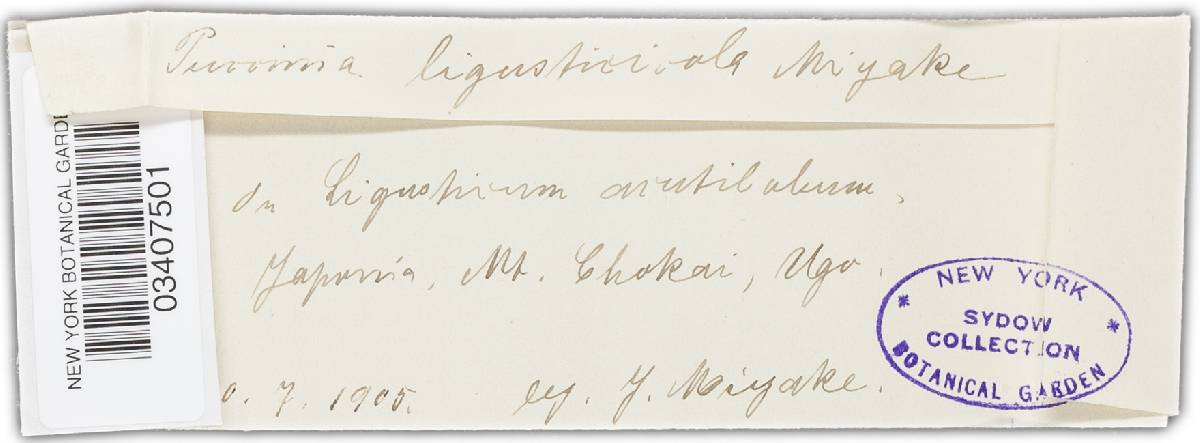 Puccinia ligusticicola Miyake
On Ligusticum acutilobum,
Japonia, Mt. Chokai, Ugo.
0. 7. 1905. leg. J. Miyake.
NEW YORK BOTANICAL GARDE
03407501
NEW YORK
SYDOW
COLLECTION
BOTANICAL GARDEN